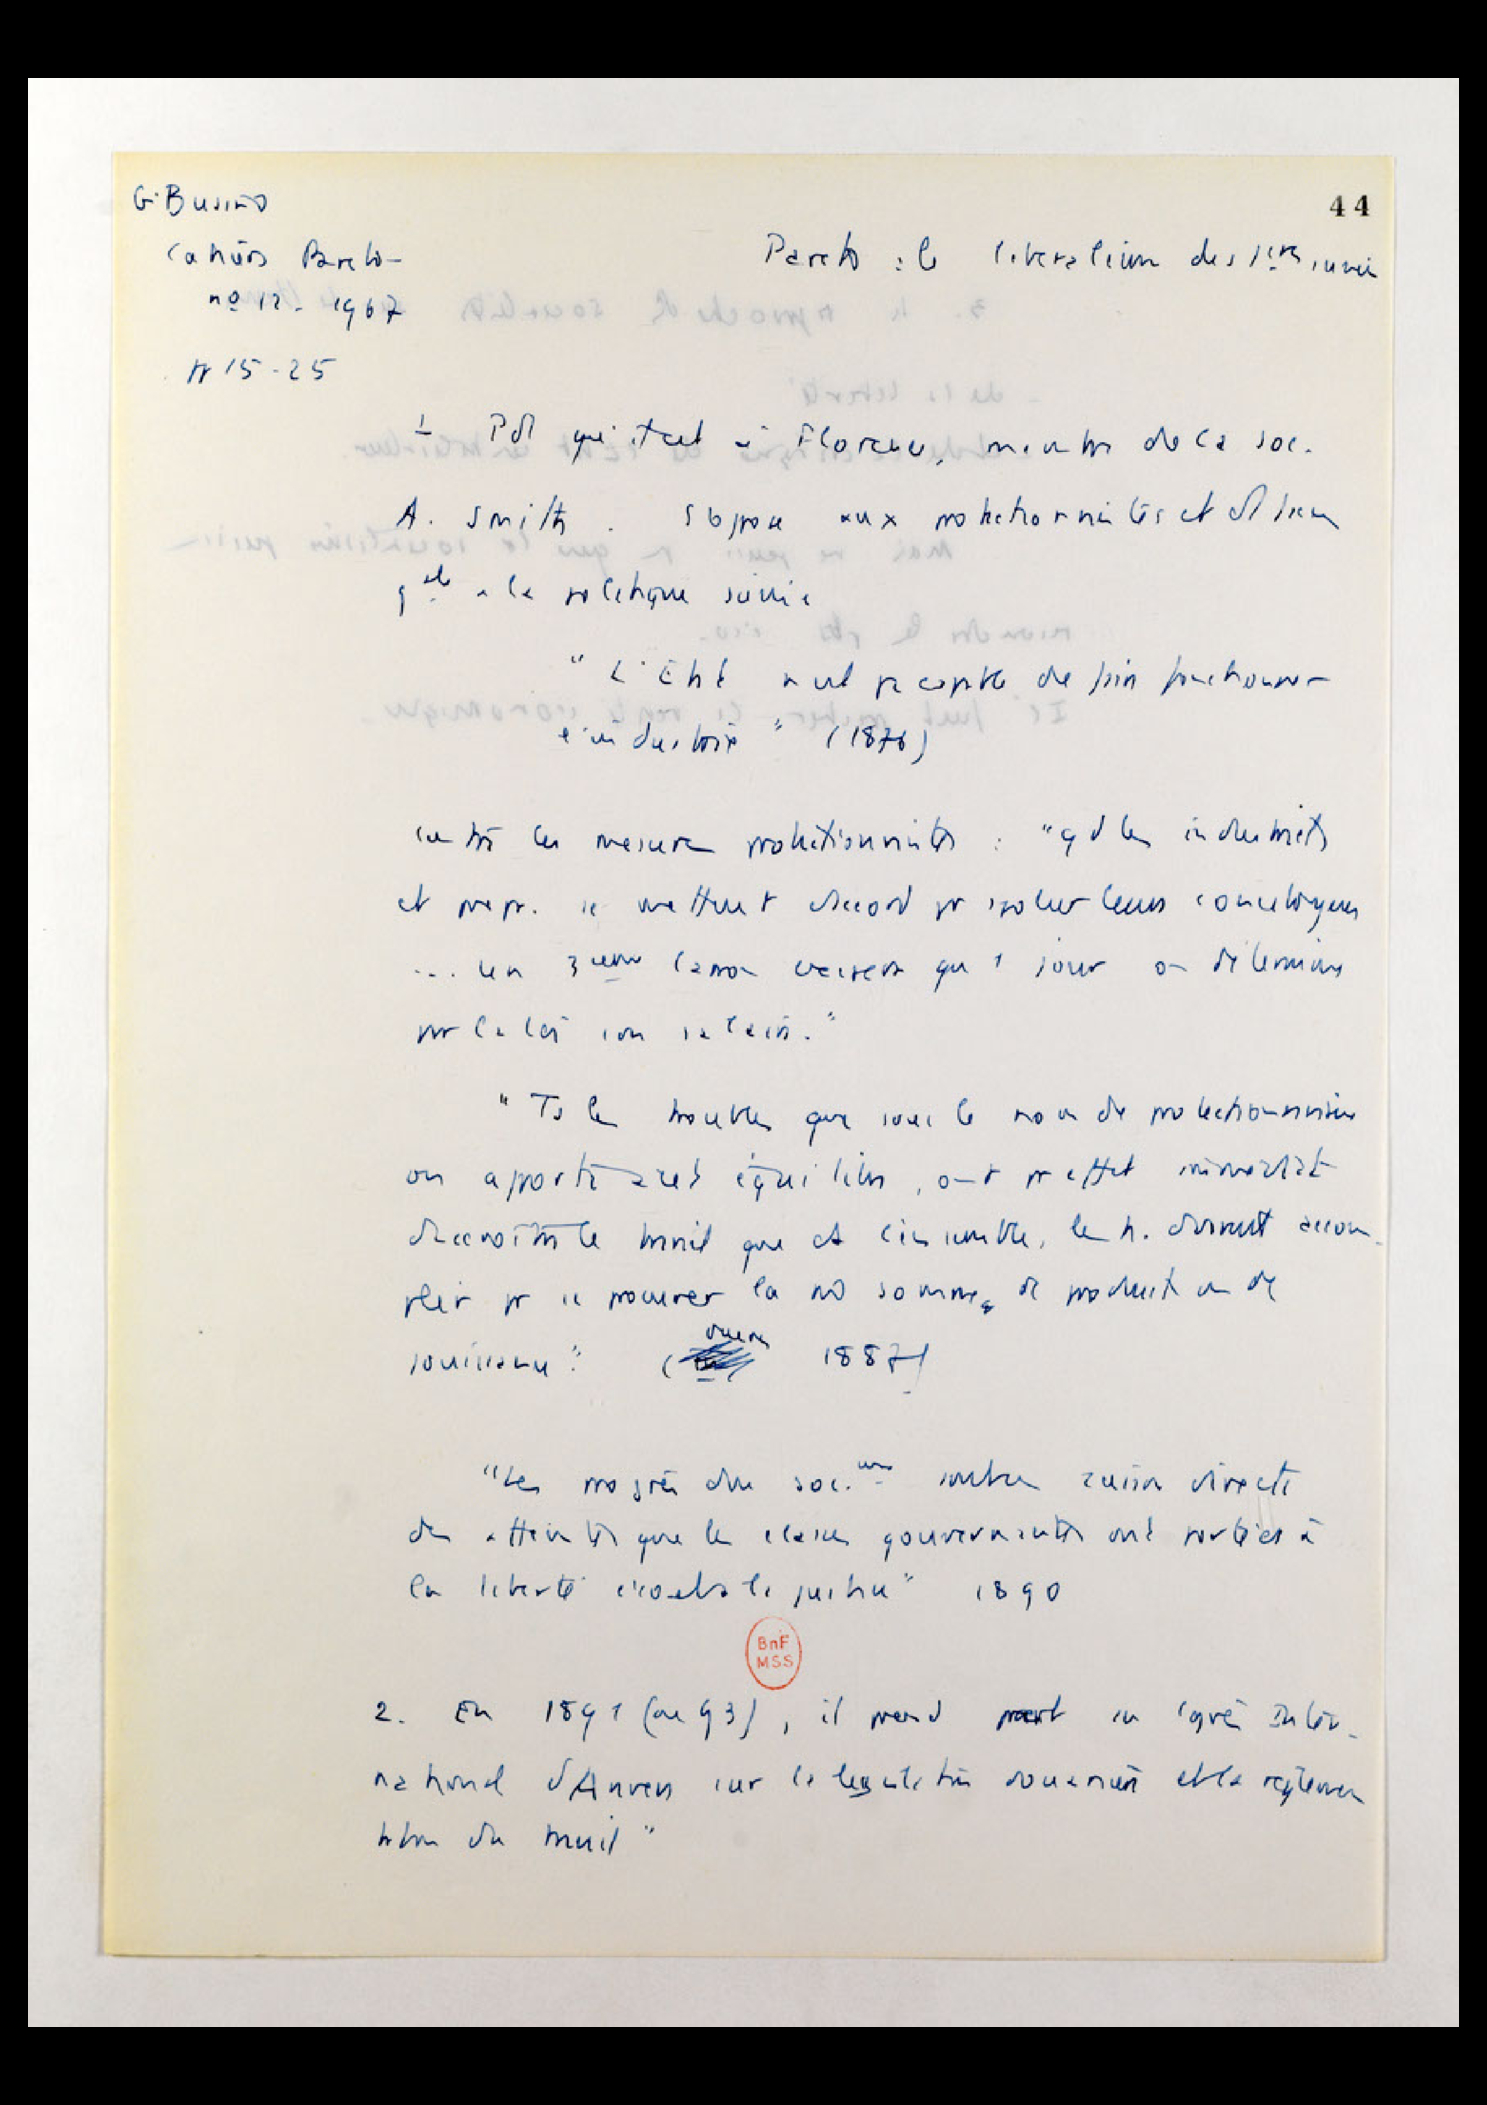 G. Busino
44
Cahiers Pareto
Pareto : le liberalisme des 1ères
no 12 - 1967
pp 15-25
1 Pdt qu'il était à Florence, membre de la soc.
A. Smith. S'oppose aux protectionnistes et
à la politique suivie
"L'État n'est pas capable de faire fonctionner
l'industrie" (1876)
contre les mesures protectionnistes : "qd les industriels
et propr. se mettent d'accord pr spolier leurs concitoyens
... un 3ème larron qu'1 jour on détermine
par la loi son salaire."
"Ts les troubles que sous le nom de protectionnisme
on apporte à cet équilibre, ont pr effet immédiat
d'accroître le travail que ds l'ensemble, les h. doivent accom-
plir pr se procurer la m̂ somme de produits ou de
jouissance" ( 1887)
"Les progrès du soc.isme sont en raison directe
des atteintes que les classes gouvernantes ont portées à
la liberté éco et à la justice" 1890
BnF
MSS
2. En 1891 (ou 93), il prend part au Congrès Inter-
national d'Anvers sur la législation douanière et la réglemen
tation du travail"